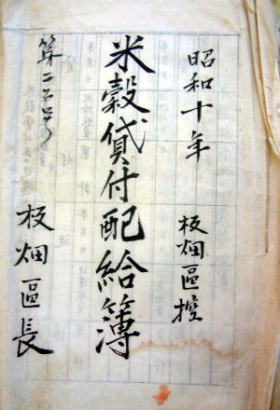 昭和十年 板畑區控
米穀貸付配給簿
板畑區長